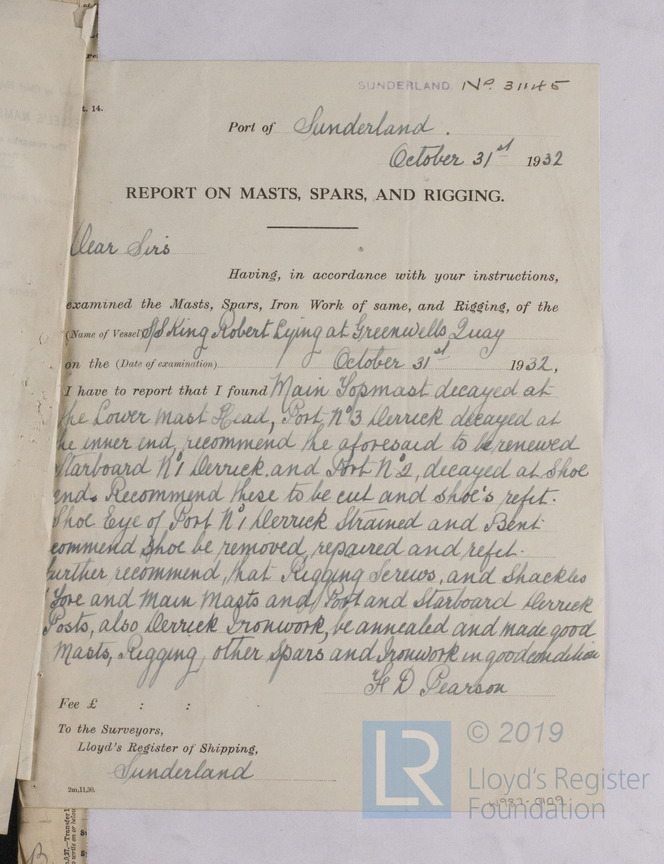 SUNDERLAND. No. 31145
t. 14.
Port of Sunderland.
October 31st 1932
REPORT ON MASTS, SPARS, AND RIGGING.
Dear Sirs
Having, in accordance with your instructions,
examined the Masts, Spars, Iron Work of same, and Rigging, of the
(Name of Vessel) S/S King Robert Lying at Greenwells Quay
on the (Date of examination) October 31st 1932,
I have to report that I found Main Topmast decayed at
the Lower Mast Head, Port No 3 Derrick decayed at
he inner end, recommend the aforesaid to be renewed
Starboard No 1 Derrick. and Port No 2, decayed at Shoe
ends. Recommend these to be cut and Shoe's refit.
Shoe Eye of Port No 1 Derrick Strained and Bent
ecommend Shoe be removed, repaired and refit.
further recommend, that Rigging Screws, and Shackles
Fore and Main Masts and Port and Starboard Derrick
Posts, also Derrick Ironwork, be annealed and made good
Masts, Rigging, other Spars and Ironwork in good condition
H D Pearson
Fee £ : :
To the Surveyors,
Lloyd's Register of Shipping,
Sunderland
2m,11,30.
LR © 2019
Lloyd's Register
Foundation